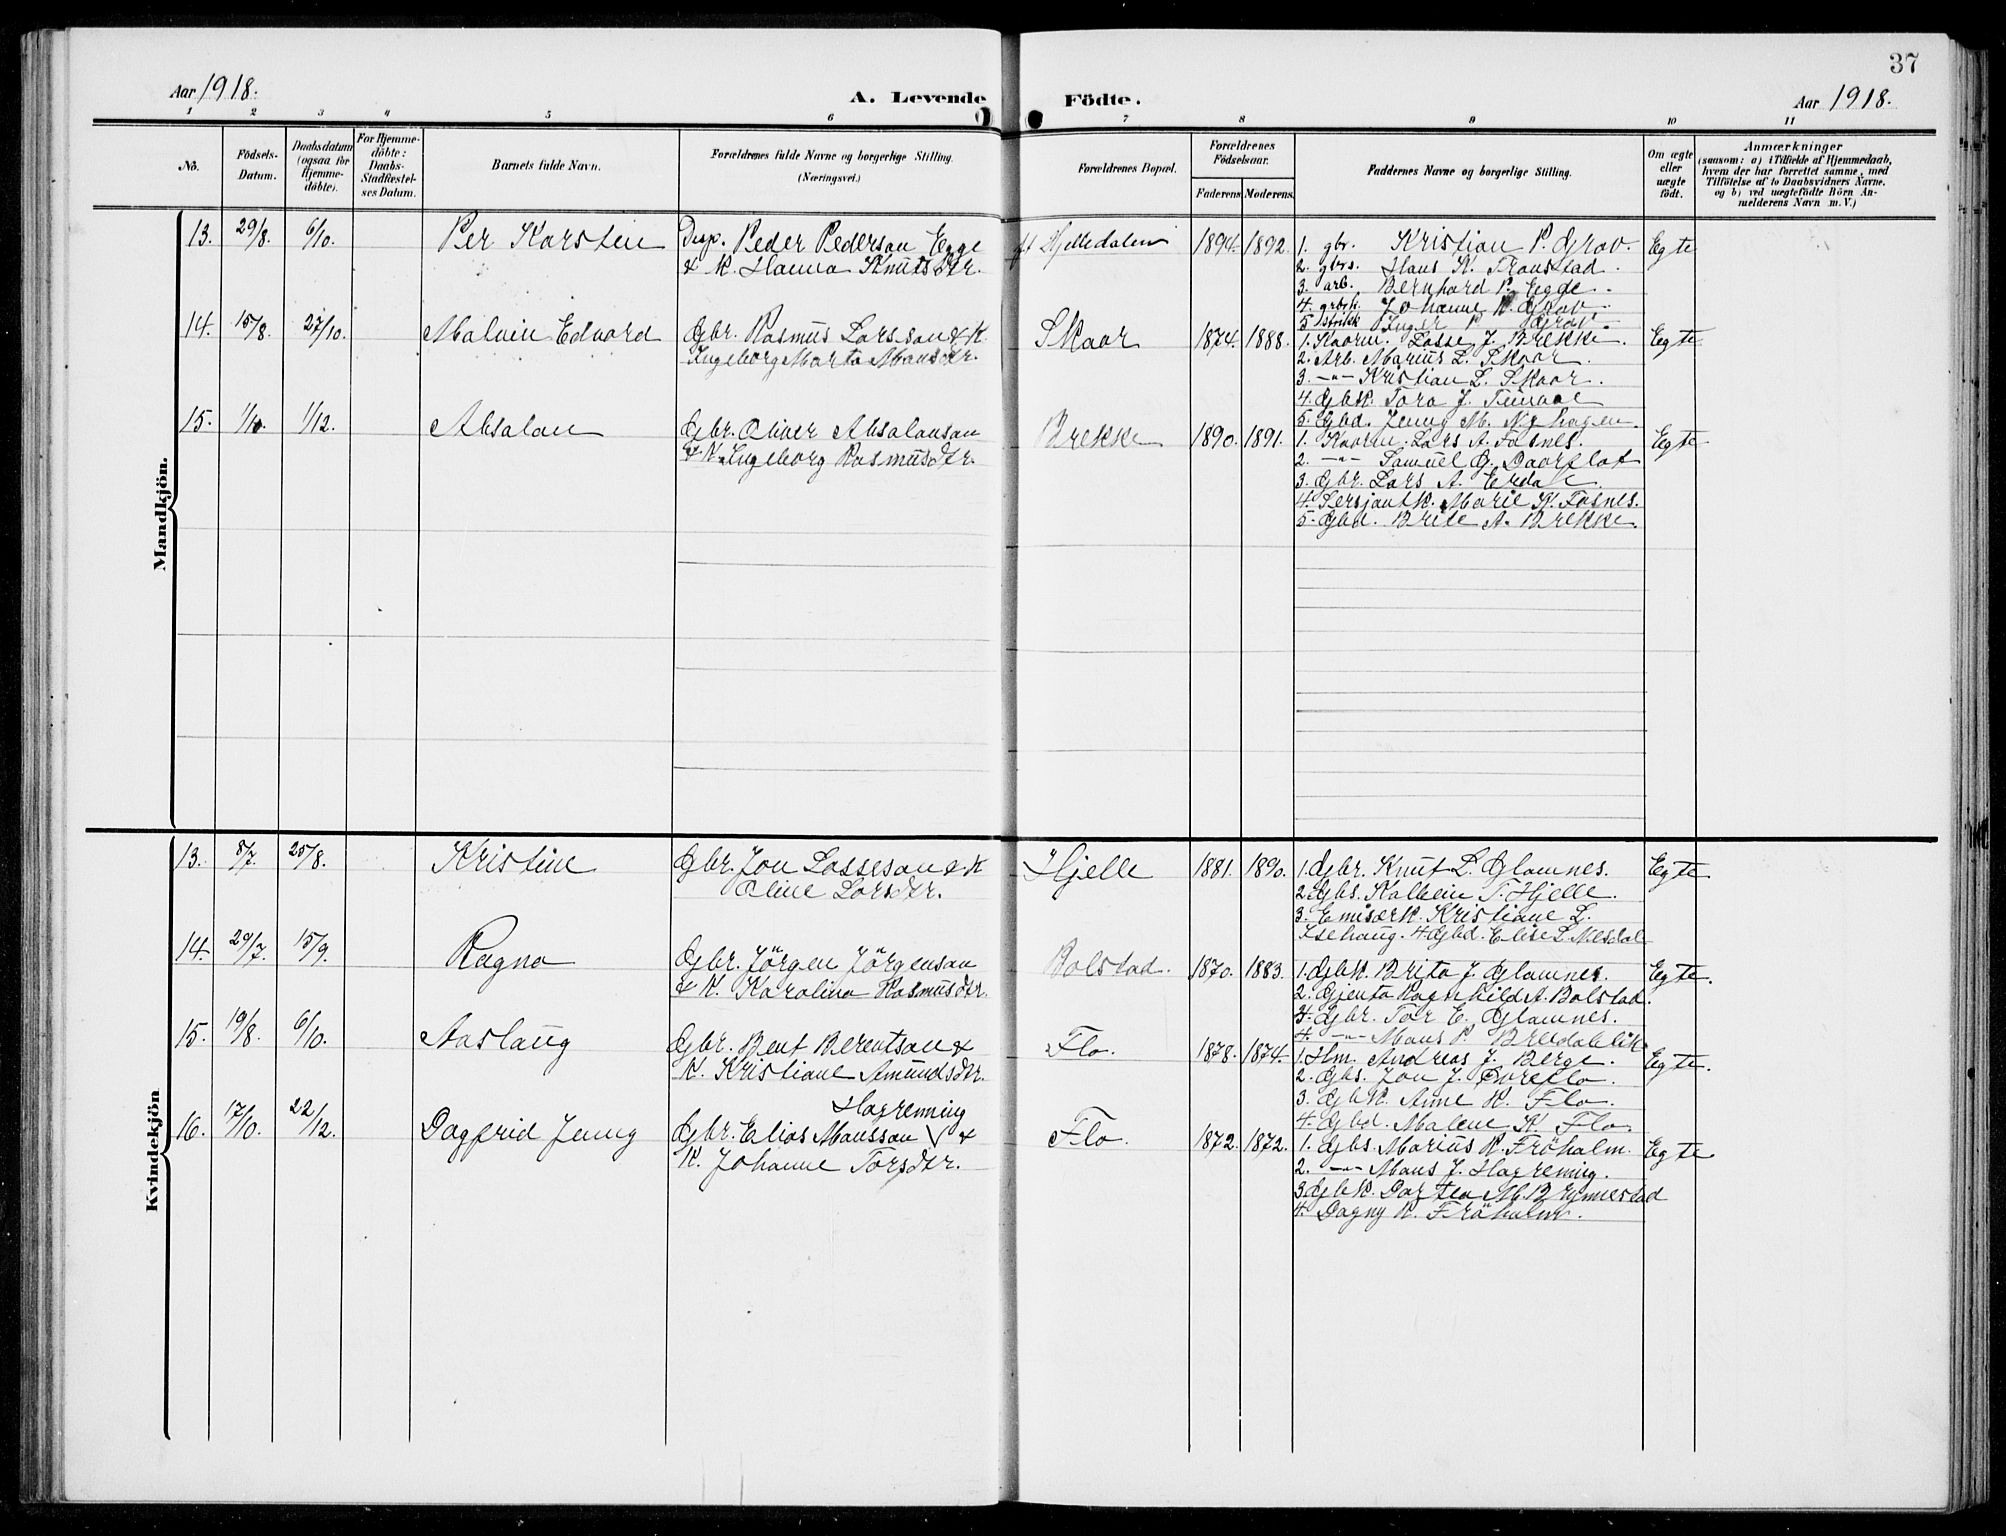 37
Aar 1918.
A. Levende Födte.
Aar 1918.
1 2 3 4 5 6 7 8 9 10 11
No.
Födsels-Datum.
Daabsdatum (ogsaa for Hjemme-döbte).
For Hjemme-döbte: Daabs-Stadfæstel-ses Datum.
Barnets fulde Navn.
Forældrenes fulde Navne og borgerlige Stilling.
(Næringsvei.)
Forældrenes Bopæl.
Forældrenes Födselsaar.
Faderens. Moderens.
Faddernes Navne og borgerlige Stilling.
Om ægte eller uægte födt.
Anmærkninger
(saasom: a) i Tilfælde af Hjemmedaab,
hvem der har forrettet samme, med
Tilföielse af to Daabsvidners Navne.
og b) ved uægtefödte Börn An-
melderens Navn m. V.)
Mandkjön.
13. 29/8. 6/10. Per Karsten
Disp. Peder Pederson Egge
& K. Hanna Knutsdtr.
Hjelledalen 1894. 1892.
1. gbr. Kristian P. Grov.
2. gbrs. Hans K. Tronstad.
3. arb. Bernhard P. Egge.
4. grbrk. Johanne K. Grov.
5 Inger P. Grov.
Egte
14. 15/8. 27/10. Malvin Edvard
Gbr. Rasmus Larsson & K.
Ingeborg Marta Monsdtr.
Skaar 1874. 1888.
1. Kaarm. Lasse J. Brekke.
2. Arb. Marius L. Skaar.
3. -"- Kristian L. Skaar.
4. Gbk. Tora J.
5. Gbd. Jenny M. Nyhagen
Egte
15. 1/10. 1/12. Absalon
Gbr. Oliver Absalonson
& K. Ingeborg Rasmusdtr.
Brekke 1890. 1891.
1. Kaarm. Lars A. Fosnes.
2. -"- Samuel G. Daarflot
3. Gbr. Lars A. Erdal.
4. Sersjantk. Marie K. Fosnes.
5. Gbd. Brite A. Brekke.
Egte
Kvindekjön
13. 8/7. 25/8. Kristine
Gbr. Jon Lasseson & K
Oline Larsdtr.
Hjelle 1881. 1890.
1. Gbr. Knut L. Glomnes.
2. Gbs. Kolbein T. Hjelle.
3. Emisærk. Kristiane L.
Isehaug. 4 Gbd. Elise L. Nesdal
Egte
14. 29/7. 15/9. Ragna
Gbr. Jörgen Jörgenson
& K. Karolina Rasmusdtr.
Bolstad. 1870. 1883.
1. Gbk. Brita J. Glomnes.
2. Gjenta Ragnhild A. Bolstad.
3. Gbr. Tor E. Glomnes.
4. -"- Mons P.
Egte.
15. 19/8. 6/10. Aaslaug
Gbr. Bent Berentson &
K. Kristiane Amundsdtr.
Flo. 1878. 1874.
1. Hm. Andreas J. Berge.
2. Gbs. Jon J. Boreflo.
3. Gbk. Anne K. Flo.
4. Gbd. Malene K. Flo.
Egte.
16. 17/10. 22/12. Dagfrid Jenny
Hagrenning
Gbr. Elias Monsson &
K. Johanne Torsdtr.
Flo. 1872. 1872.
1. Gbs. Marius K. Fröholm.
2. -"- Mons J. Hagrening.
3. Gbk. Dortea M. Brynnestad
4. Dagny K. Fröholm.
Egte.